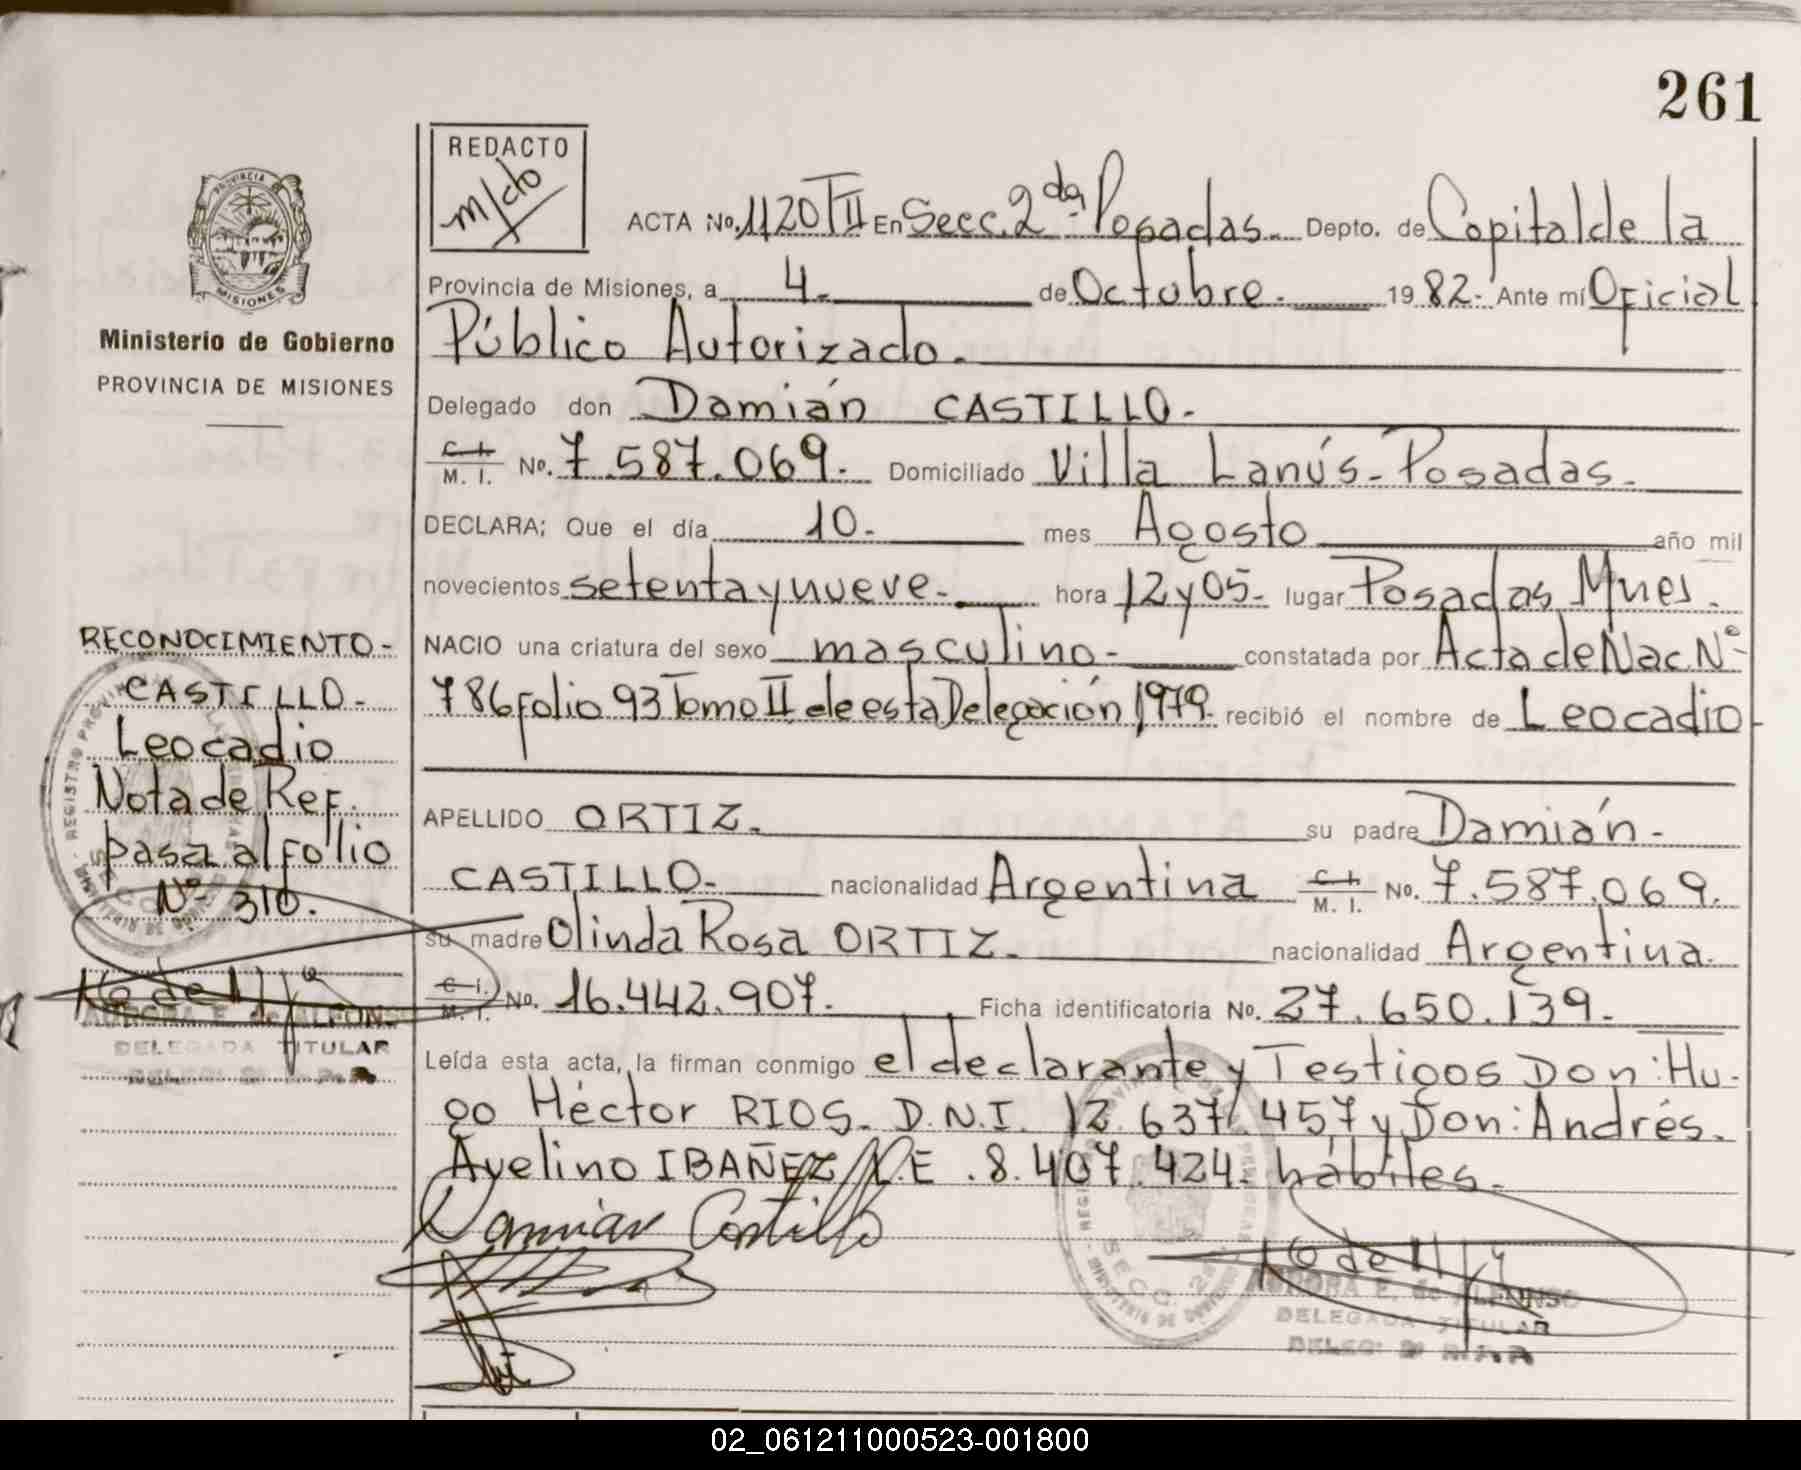 261
REDACTO
ACTA No. 1120 TII En Secc. 2da Posadas.- Depto. de Capital de la
PROVINCIA DE
MISIONES
Provincia de Misiones, a 4.- de Octubre.- 19 82.- Ante mí Oficial
Ministerio de Gobierno
Público Autorizado.-
PROVINCIA DE MISIONES
Delegado don Damián CASTILLO.-
C. I.
M. I. No. 7.587.069.- Domiciliado Villa Lanús.- Posadas.-
DECLARA; Que el día 10.- mes Agosto año mil
novecientos setenta y nueve.- hora 12 y 05.- lugar Posadas Mnes.
NACIO una criatura del sexo masculino.- constatada por Acta de Nac. Nº
786 Folio 93 Tomo II de esta Delegación 1979.- recibió el nombre de Leocadio-
RECONOCIMIENTO-
CASTILLO.-
Leocadio
Nota de Ref.
pasa al folio
Nº 310.
APELLIDO ORTIZ.- su padre Damián.-
CASTILLO.- nacionalidad Argentina C. I.
M. I. No. 7.587.069.
su madre Olinda Rosa ORTIZ.- nacionalidad Argentina.
C. I.
M. I. No. 16.442.907.- Ficha identificatoria No. 27.650.139.-
AURORA E. de ALFONSO
DELEGADA TITULAR
Leída esta acta, la firman conmigo el declarante y Testigos Don: Hu-
go Héctor RIOS.- D.N.I. 12.637.457 y Don: Andrés.
Avelino IBAÑEZ L.E. 8.407.424.- hábiles.-
Damian Castillo
SECC. 2
AURORA E. de ALFONSO
DELEGADA TITULAR
02_061211000523-001800